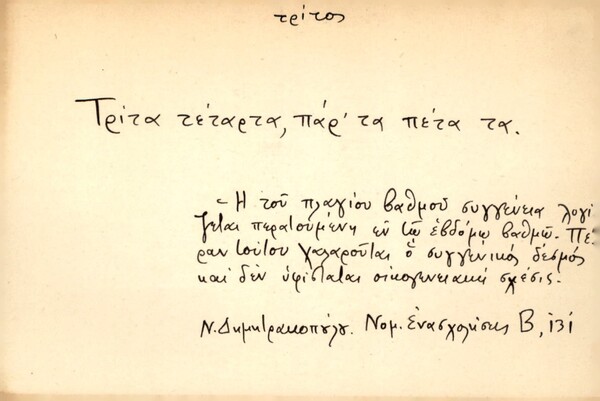 τρίτος
Τρίτα τέταρτα, πάρ' τα πέτα τα.
- Ἡ τοῦ πλαγίου βαθμοῦ συγγένεια λογί
ζεται περατουμένη ἐν τῷ ἑβδόμῳ βαθμῷ. Πέ
ραν τούτου χαλαροῦται ὁ συγγενικός δεσμός
καί δέν ὑφίσταται οἰκογενειακή σχέσις.
Ν. Δημητρακοπούλου. Νομ. Ἐνασχολήσεις Β, 131